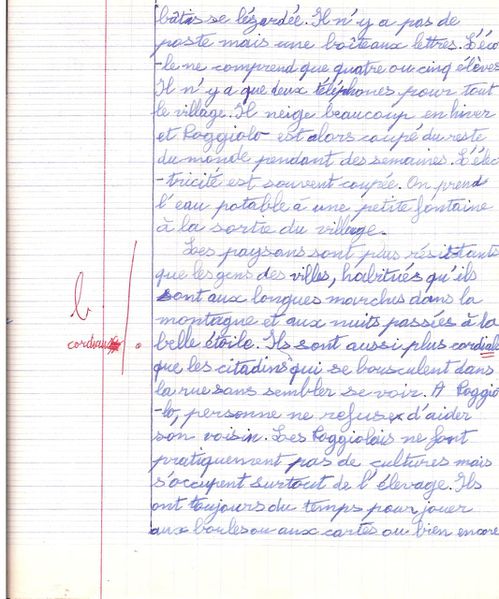 bâtis se lézardée. Il n'y a pas de
poste mais une boîteaux lettres. L'éco
-le ne comprend que quatre ou cinq élèves
Il n'y a que deux téléphones pour tout
le village. Il neige beaucoup en hiver
et Poggiolo est alors coupé du reste
du monde pendant des semaines. L'élec
-tricité est souvent coupée. On prend
l'eau potable à une petite fontaine
à la sortie du village.
Les paysans sont plus résistants
que les gens des villes, habitués qu'ils
sont aux longues marches dans la
montagne et aux nuits passées à la
belle étoile. Ils sont aussi plus cordiale
que les citadins qui se bousculent dans
la rue sans sembler se voir. A Poggio
-lo, personne ne refuse d'aider
son voisin. Les Poggiolais ne font
pratiquement pas de cultures mais
s'occupent surtout de l'élevage. Ils
ont toujours du temps pour jouer
aux boules ou aux cartes ou bien encore
b
cordiaux